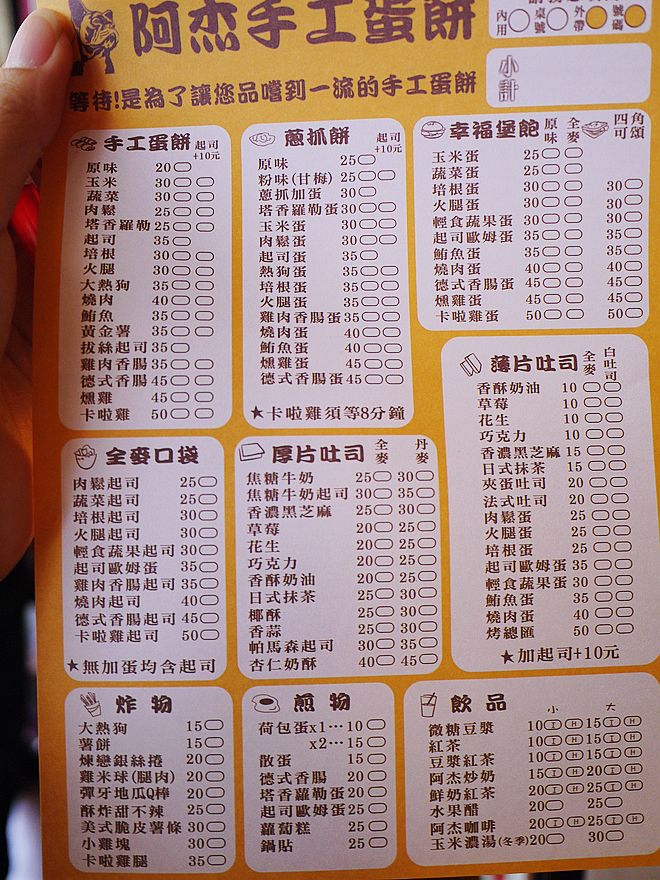 阿杰手工蛋餅
內用 桌號 外帶 號碼
等待!是為了讓您品嚐到一流的手工蛋餅
小計
手工蛋餅 起司+10元
原味 20
玉米 30
蔬菜 30
肉鬆 25
塔香羅勒 25
起司 35
培根 30
火腿 30
大熱狗 35
燒肉 40
鮪魚 35
黃金薯 35
拔絲起司 35
雞肉香腸 35
德式香腸 45
燻雞 45
卡啦雞 50
蔥抓餅 起司+10元
原味 25
粉味(甘梅) 25
蔥抓加蛋 30
塔香羅勒蛋 30
玉米蛋 30
肉鬆蛋 30
起司蛋 35
熱狗蛋 35
培根蛋 35
火腿蛋 35
雞肉香腸蛋 35
燒肉蛋 40
鮪魚蛋 40
燻雞蛋 45
德式香腸蛋 45
★卡啦雞須等8分鐘
幸福堡飽 原味 全麥 四角可頌
玉米蛋 25
蔬菜蛋 25
培根蛋 30 30
火腿蛋 30 30
輕食蔬果蛋 30 30
起司歐姆蛋 35 35
鮪魚蛋 35 35
燒肉蛋 40 40
德式香腸蛋 45 45
燻雞蛋 45 45
卡啦雞蛋 50 50
薄片吐司 全麥 白吐司
香酥奶油 10
草莓 10
花生 10
巧克力 10
香濃黑芝麻 15
日式抹茶 15
夾蛋吐司 20
法式吐司 20
肉鬆蛋 25
火腿蛋 25
培根蛋 25
起司歐姆蛋 35
輕食蔬果蛋 30
鮪魚蛋 35
燒肉蛋 40
烤總匯 50
★加起司+10元
全麥口袋
肉鬆起司 25
蔬菜起司 25
培根起司 30
火腿起司 30
輕食蔬果起司 30
起司歐姆蛋 35
雞肉香腸起司 35
燒肉起司 40
德式香腸起司 45
卡啦雞起司 50
★無加蛋均含起司
厚片吐司 全麥 丹麥
焦糖牛奶 25 30
焦糖牛奶起司 30 35
香濃黑芝麻 25 30
草莓 20 25
花生 20 25
巧克力 20 25
香酥奶油 20 25
日式抹茶 25 30
椰酥 25 30
香蒜 25 30
帕馬森起司 30 35
杏仁奶酥 40 45
炸物
大熱狗 15
薯餅 15
煉戀銀絲捲 20
雞米球(腿肉) 20
彈牙地瓜Q棒 20
酥炸甜不辣 25
美式脆皮薯條 30
小雞塊 30
卡啦雞腿 35
煎物
荷包蛋x1…10
x2…15
散蛋 15
德式香腸 20
塔香蘿勒蛋 20
起司歐姆蛋 25
蘿蔔糕 25
鍋貼 25
飲品 小 大
微糖豆漿 10 I H 15 I H
紅茶 10 I H 15 I H
豆漿紅茶 10 I H 15 I H
阿杰炒奶 15 I H 20 I H
鮮奶紅茶 20 I H 25 I H
水果醋 20 25
阿杰咖啡 20 I H 25 I H
玉米濃湯(冬季) 20 30